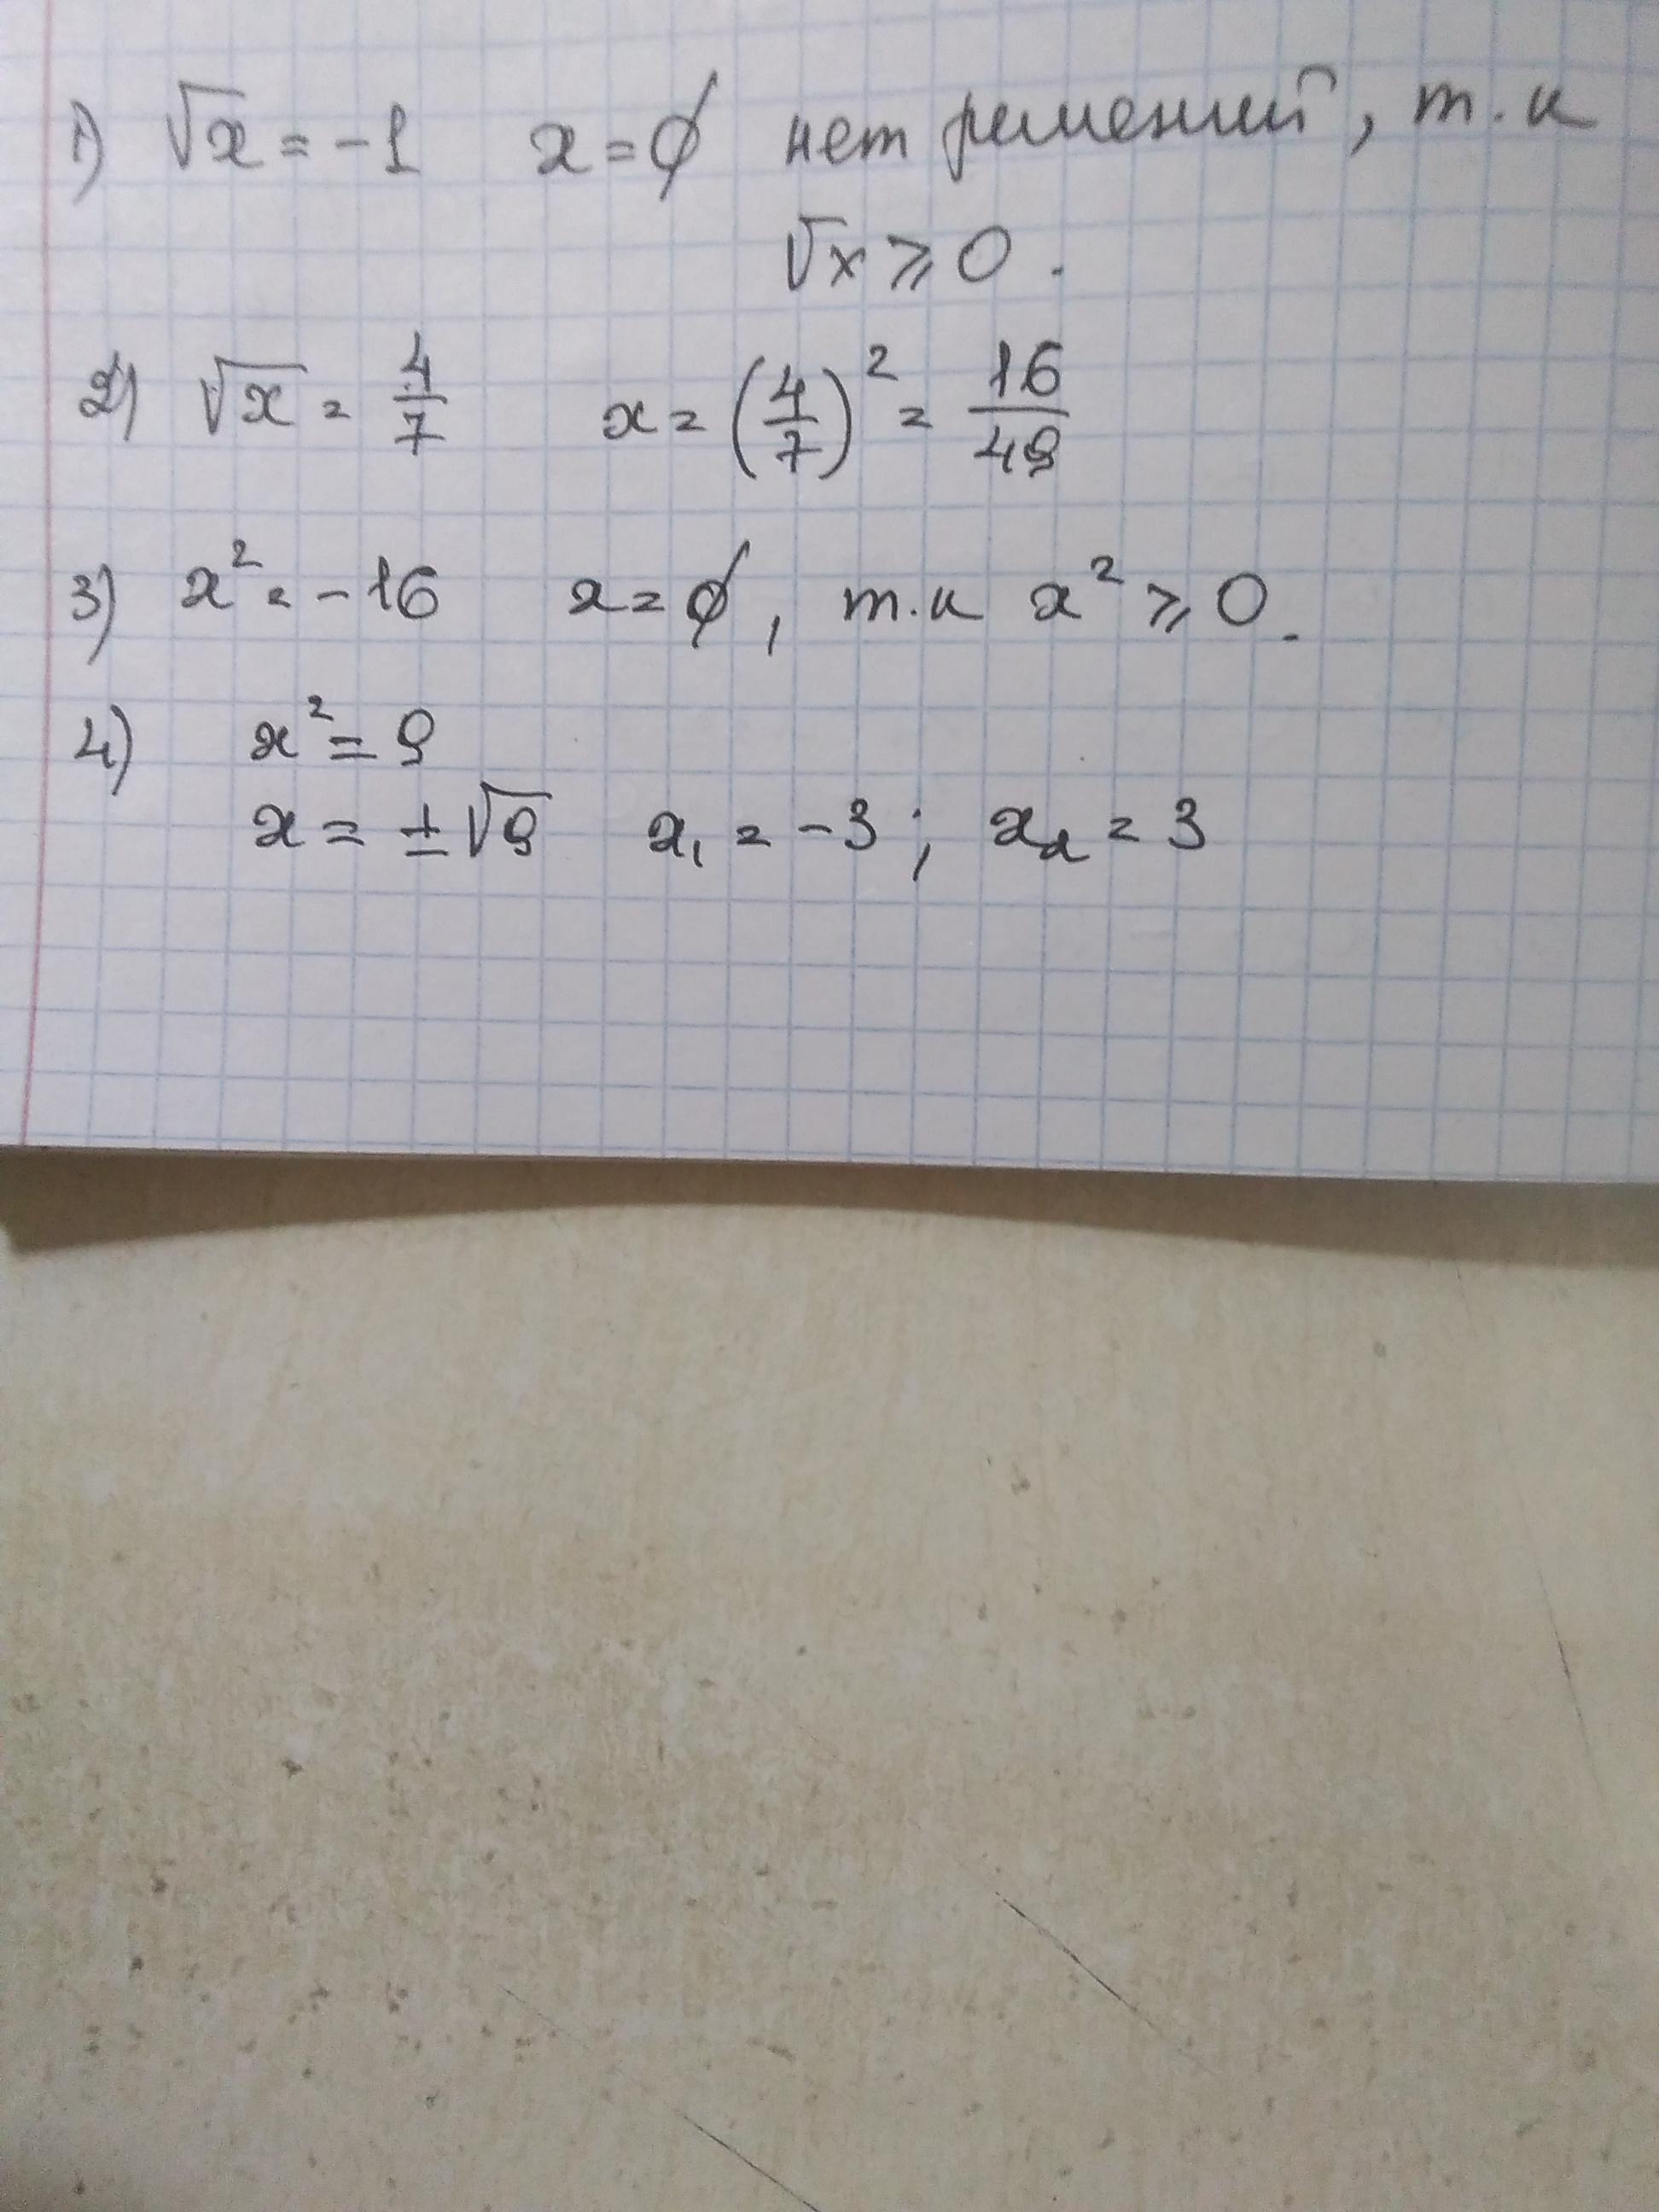 1) √x = -1 x = ∅ нет решений, т.к
√x ⩾ 0.
2) √x = 4/7 x = (4/7)² = 16/49
3) x² = -16 x = ∅, т.к x² ⩾ 0.
4) x² = 9
x = ±√9 x₁ = -3; x₂ = 3